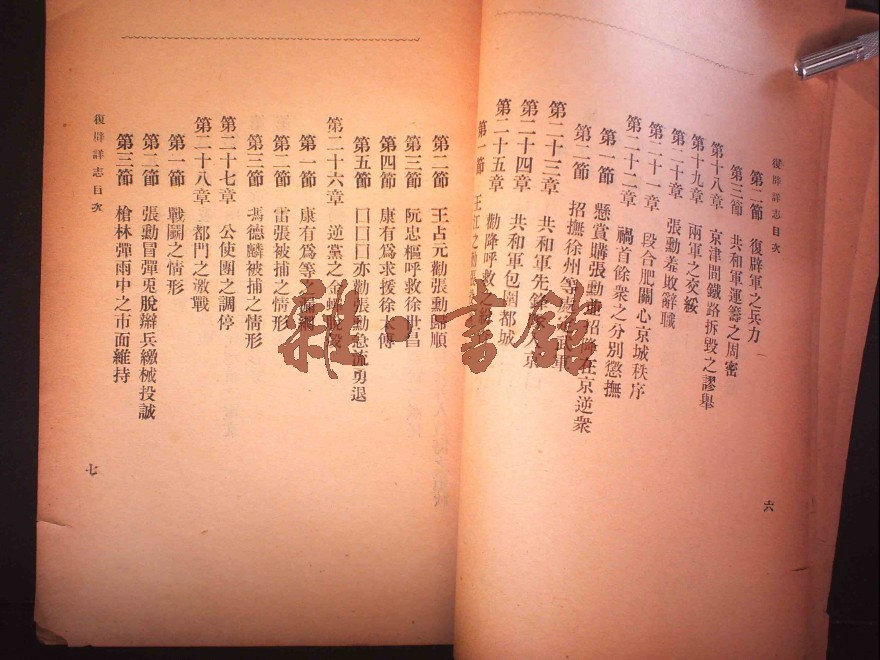 復辟詳志目次
第二節 復辟軍之兵力
第三節 共和軍運籌之周密
第十八章 京津間鐵路拆毀之謬舉
第十九章 兩軍之交綏
第二十章 張勳羞敗辭職
第二十一章 段合肥關心京城秩序
第二十二章 禍首餘衆之分別懲撫
第一節 懸賞購張勳並招降在京逆衆
第二節 招撫徐州等處定武軍
第二十三章 共和軍先鋒 京
第二十四章 共和軍包圍都城
第二十五章 勸降呼救之
第一節 王江之勸張
六
第二節 王占元勸張勳歸順
第三節 阮忠樞呼救徐世昌
第四節 康有爲求援徐太傅
第五節 囗囗囗亦勸張勳急流勇退
第二十六章 逆黨之金蟬脫殼
第一節 康有爲等漏網
第二節 雷張被捕之情形
第三節 馮德麟被捕之情形
第二十七章 公使團之調停
第二十八章 都門之激戰
第一節 戰鬭之情形
第二節 張勳冒彈兎脫辮兵繳械投誠
第三節 槍林彈雨中之市面維持
復辟詳志目次
七
雜·書館